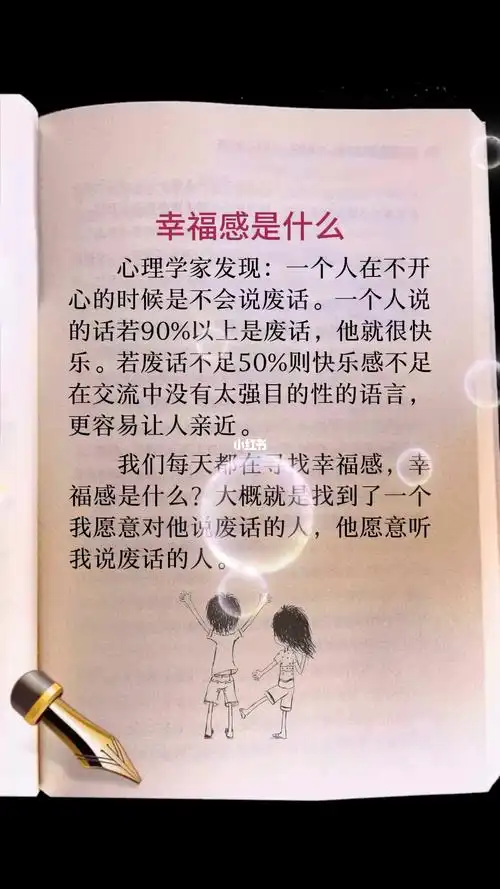 幸福感是什么
心理学家发现：一个人在不开
心的时候是不会说废话。一个人说
的话若90%以上是废话，他就很快
乐。若废话不足50%则快乐感不足
在交流中没有太强目的性的语言，
更容易让人亲近。
小红书
我们每天都在寻找幸福感，幸
福感是什么？大概就是找到了一个
我愿意对他说废话的人，他愿意听
我说废话的人。